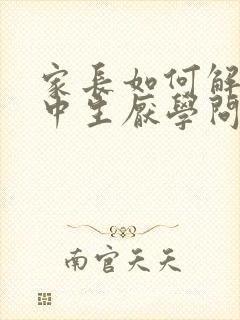 家長如何解
中生厭學問
南宫天天